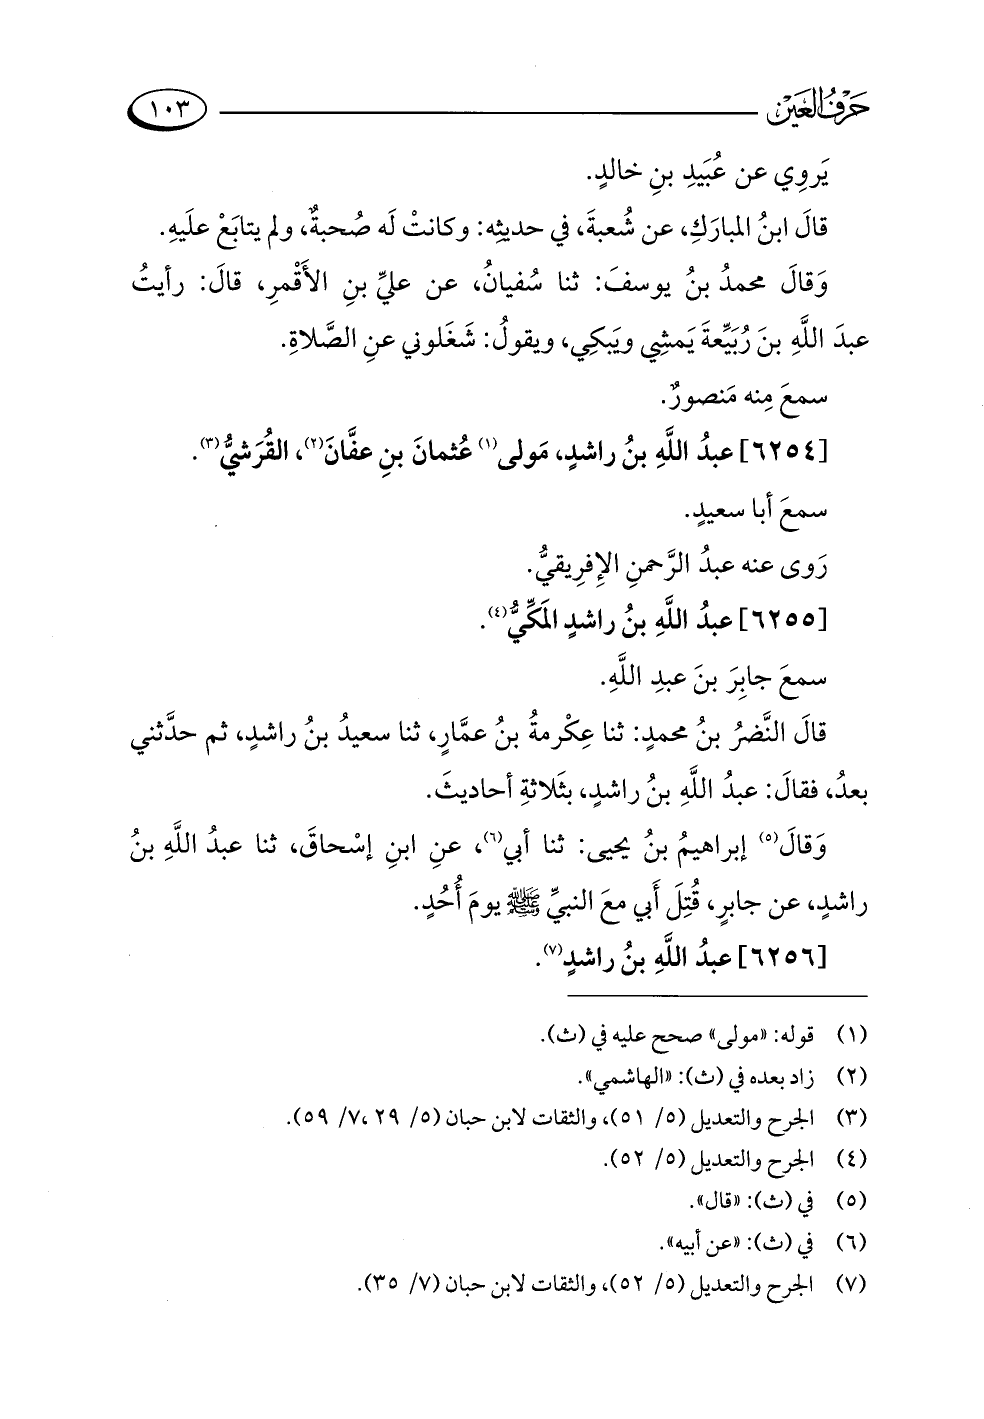 حَرْفُ العَيْن
١٠٣
يَروِي عن عُبَيدِ بنِ خالدٍ.
قالَ ابنُ المبارَكِ، عن شُعبةَ، في حديثِه: وكانتْ لَه صُحبةٌ، ولم يتابَعْ علَيهِ.
وَقالَ محمدُ بنُ يوسفَ: ثنا سُفيانُ، عن عليِّ بنِ الأَقْمرِ، قالَ: رأيتُ
عبدَ اللَّهِ بنَ رُبَيِّعةَ يَمشِي ويَبكِي، ويقولُ: شَغَلوني عنِ الصَّلاةِ.
سمعَ مِنه مَنصورٌ.
[٦٢٥٤] عبدُ اللَّهِ بنُ راشدٍ، مَولى(١) عُثمانَ بنِ عفَّانَ(٢)، القُرَشيُّ(٣).
سمعَ أبا سعيدٍ.
رَوى عنه عبدُ الرَّحمنِ الإِفرِيقيُّ.
[٦٢٥٥] عبدُ اللَّهِ بنُ راشدٍ المَكِّيُّ(٤).
سمعَ جابِرَ بنَ عبدِ اللَّهِ.
قالَ النَّضرُ بنُ محمدٍ: ثنا عِكْرمةُ بنُ عمَّارٍ، ثنا سعيدُ بنُ راشدٍ، ثم حدَّثني
بعدُ، فقالَ: عبدُ اللَّهِ بنُ راشدٍ، بثَلاثةِ أحاديثَ.
وَقالَ(٥) إبراهيمُ بنُ يحيى: ثنا أبي(٦)، عنِ ابنِ إسْحاقَ، ثنا عبدُ اللَّهِ بنُ
راشدٍ، عن جابرٍ، قُتِلَ أَبي معَ النبيِّ ﷺ يومَ أُحُدٍ.
[٦٢٥٦] عبدُ اللَّهِ بنُ راشدٍ(٧).
(١) قوله: «مولى» صحح عليه في (ث).
(٢) زاد بعده في (ث): «الهاشمي».
(٣) الجرح والتعديل (٥/ ٥١)، والثقات لابن حبان (٥/ ٢٩، ٧/ ٥٩).
(٤) الجرح والتعديل (٥/ ٥٢).
(٥) في (ث): «قال».
(٦) في (ث): «عن أبيه».
(٧) الجرح والتعديل (٥/ ٥٢)، والثقات لابن حبان (٧/ ٣٥).